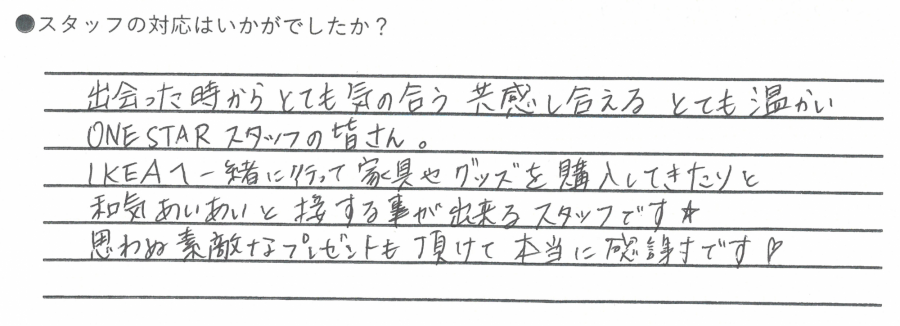 ●スタッフの対応はいかがでしたか？
出会った時からとても気の合う 共感し合える とても温かい
ONE STAR スタッフの皆さん。
IKEAへ一緒に行って家具やグッズを購入してきたりと
和気あいあいと接する事が出来るスタッフです★
思わぬ素敵なプレゼントも頂けて本当に感謝です♡